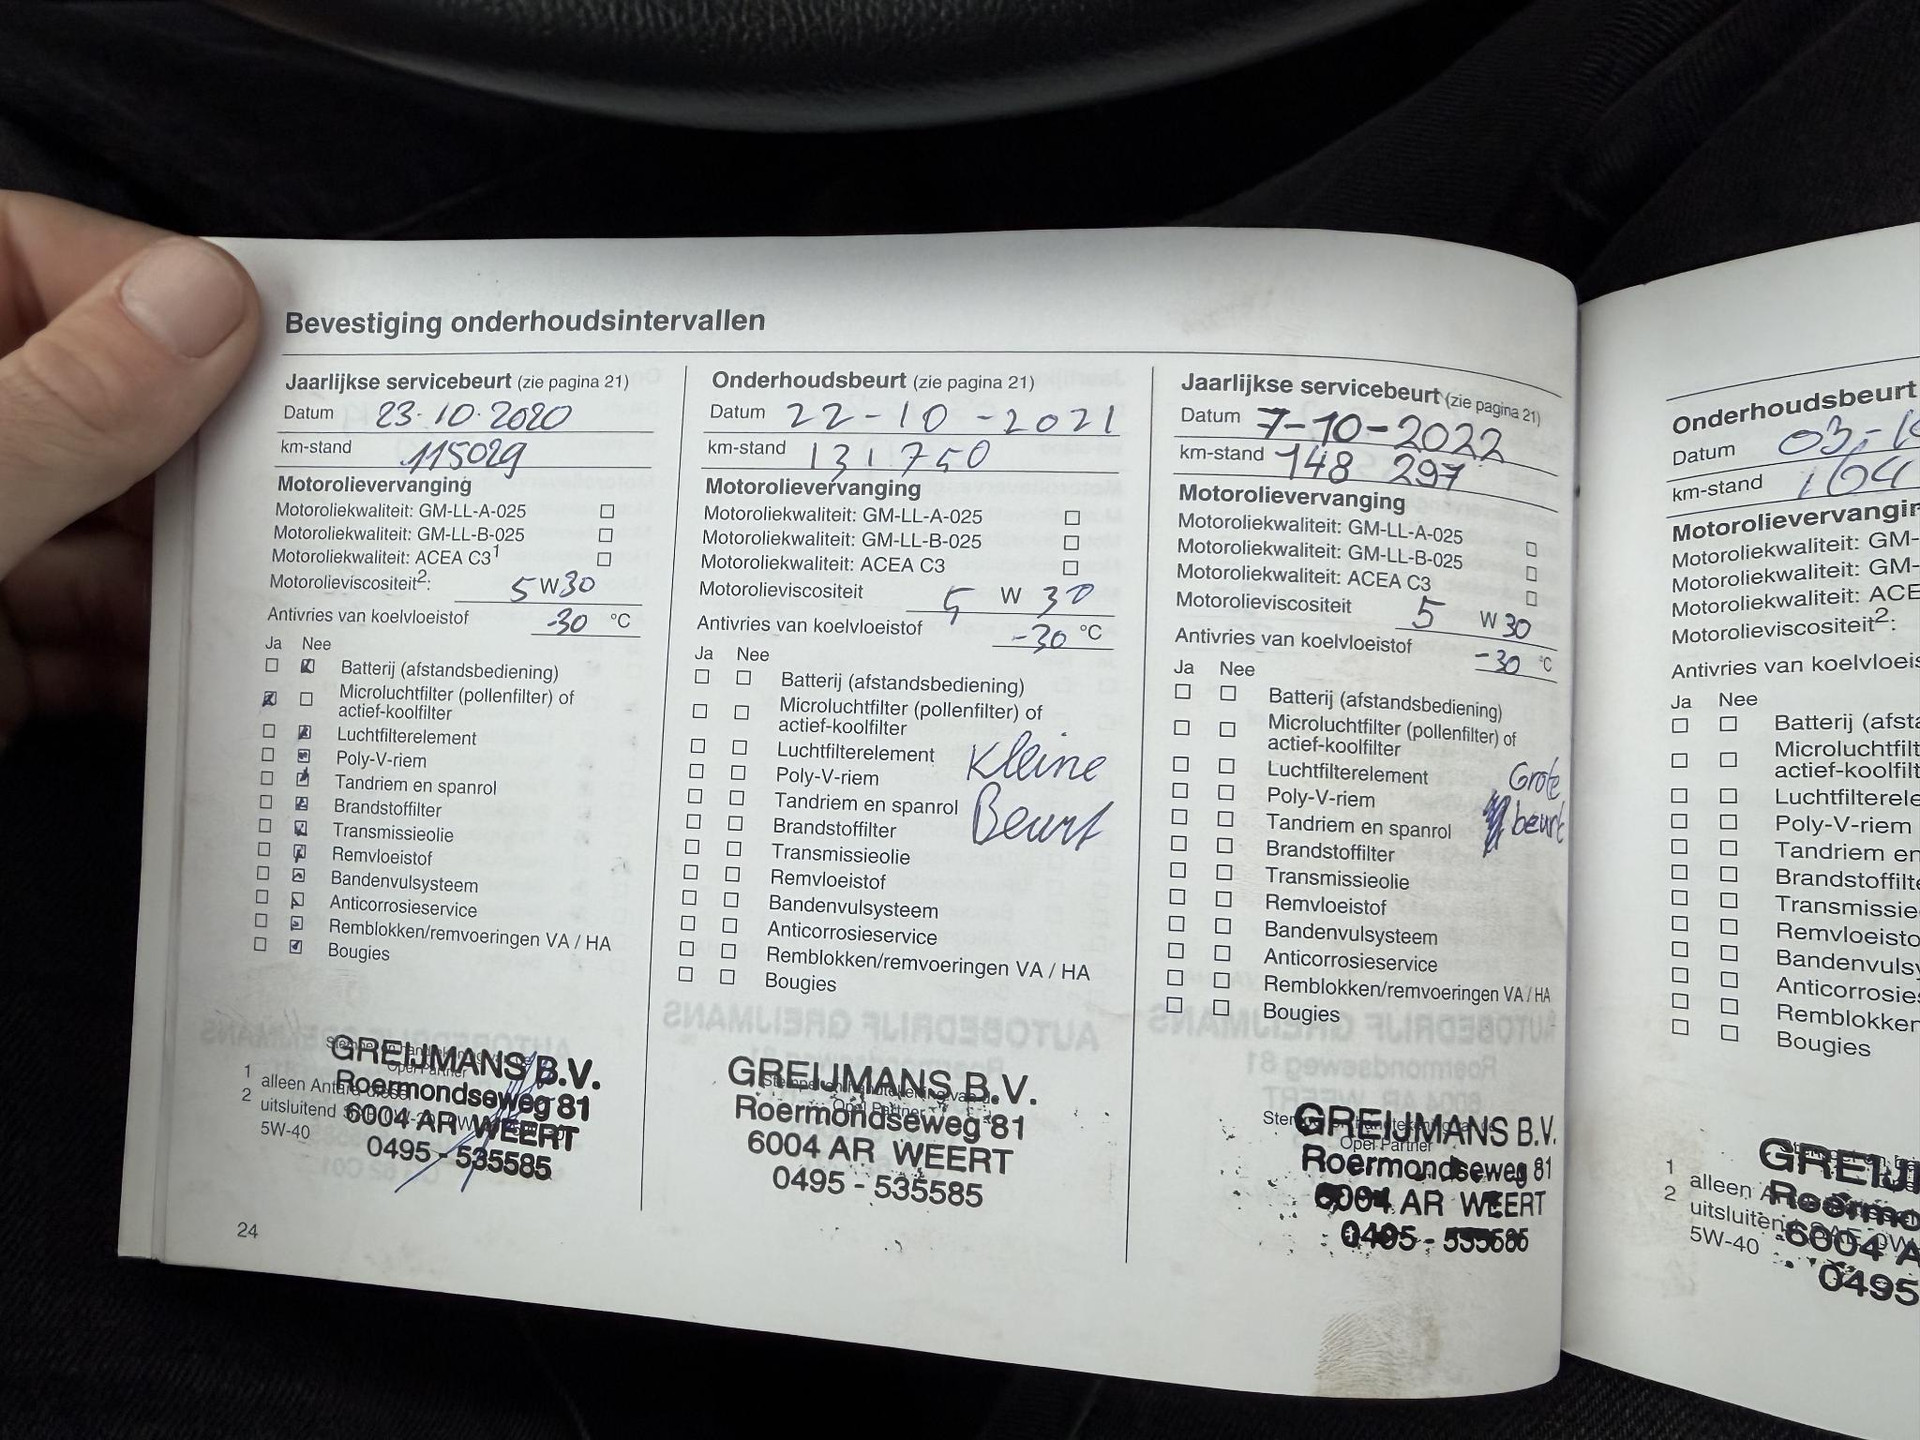 Bevestiging onderhoudsintervallen
Jaarlijkse servicebeurt (zie pagina 21)
Datum 23-10-2020
km-stand 115029
Motorolievervanging
Motoroliekwaliteit: GM-LL-A-025
Motoroliekwaliteit: GM-LL-B-025
Motoroliekwaliteit: ACEA C3¹
Motorolieviscositeit²: 5 W 30
Antivries van koelvloeistof -30 °C
Ja Nee
Batterij (afstandsbediening)
Microluchtfilter (pollenfilter) of
actief-koolfilter
Luchtfilterelement
Poly-V-riem
Tandriem en spanrol
Brandstoffilter
Transmissieolie
Remvloeistof
Bandenvulsysteem
Anticorrosieservice
Remblokken/remvoeringen VA / HA
Bougies
GREIJMANS B.V.
Opel Partner
Roermondseweg 81
6004 AR WEERT
0495 - 535585
1 alleen Antara diesel
2 uitsluitend
5W-40
24
Onderhoudsbeurt (zie pagina 21)
Datum 22-10-2021
km-stand 131750
Motorolievervanging
Motoroliekwaliteit: GM-LL-A-025
Motoroliekwaliteit: GM-LL-B-025
Motoroliekwaliteit: ACEA C3
Motorolieviscositeit 5 W 30
Antivries van koelvloeistof -30 °C
Ja Nee
Batterij (afstandsbediening)
Microluchtfilter (pollenfilter) of
actief-koolfilter
Luchtfilterelement
Poly-V-riem
Tandriem en spanrol
Brandstoffilter
Transmissieolie
Remvloeistof
Bandenvulsysteem
Anticorrosieservice
Remblokken/remvoeringen VA / HA
Bougies
Kleine
Beurt
GREIJMANS B.V.
Stempel en handtekening van de
Opel Partner
Roermondseweg 81
6004 AR WEERT
0495 - 535585
Jaarlijkse servicebeurt (zie pagina 21)
Datum 7-10-2022
km-stand 148 297
Motorolievervanging
Motoroliekwaliteit: GM-LL-A-025
Motoroliekwaliteit: GM-LL-B-025
Motoroliekwaliteit: ACEA C3
Motorolieviscositeit 5 W 30
Antivries van koelvloeistof -30 °C
Ja Nee
Batterij (afstandsbediening)
Microluchtfilter (pollenfilter) of
actief-koolfilter
Luchtfilterelement
Poly-V-riem
Tandriem en spanrol
Brandstoffilter
Transmissieolie
Remvloeistof
Bandenvulsysteem
Anticorrosieservice
Remblokken/remvoeringen VA / HA
Bougies
Grote
beurt
GREIJMANS B.V.
Stempel en handtekening van de
Opel Partner
Roermondseweg 81
6004 AR WEERT
0495 - 535585
Onderhoudsbeurt
Datum 03-1
km-stand 164
Motorolievervangin
Motoroliekwaliteit: GM-
Motoroliekwaliteit: GM-
Motoroliekwaliteit: ACE
Motorolieviscositeit²:
Antivries van koelvloeis
Ja Nee
Batterij (afsta
Microluchtfilt
actief-koolfil
Luchtfilterele
Poly-V-riem
Tandriem en
Brandstoffilte
Transmissie
Remvloeisto
Bandenvulsy
Anticorrosies
Remblokken
Bougies
GREIJ
Roermo
6004 A
0495
1 alleen
2 uitsluitend
5W-40